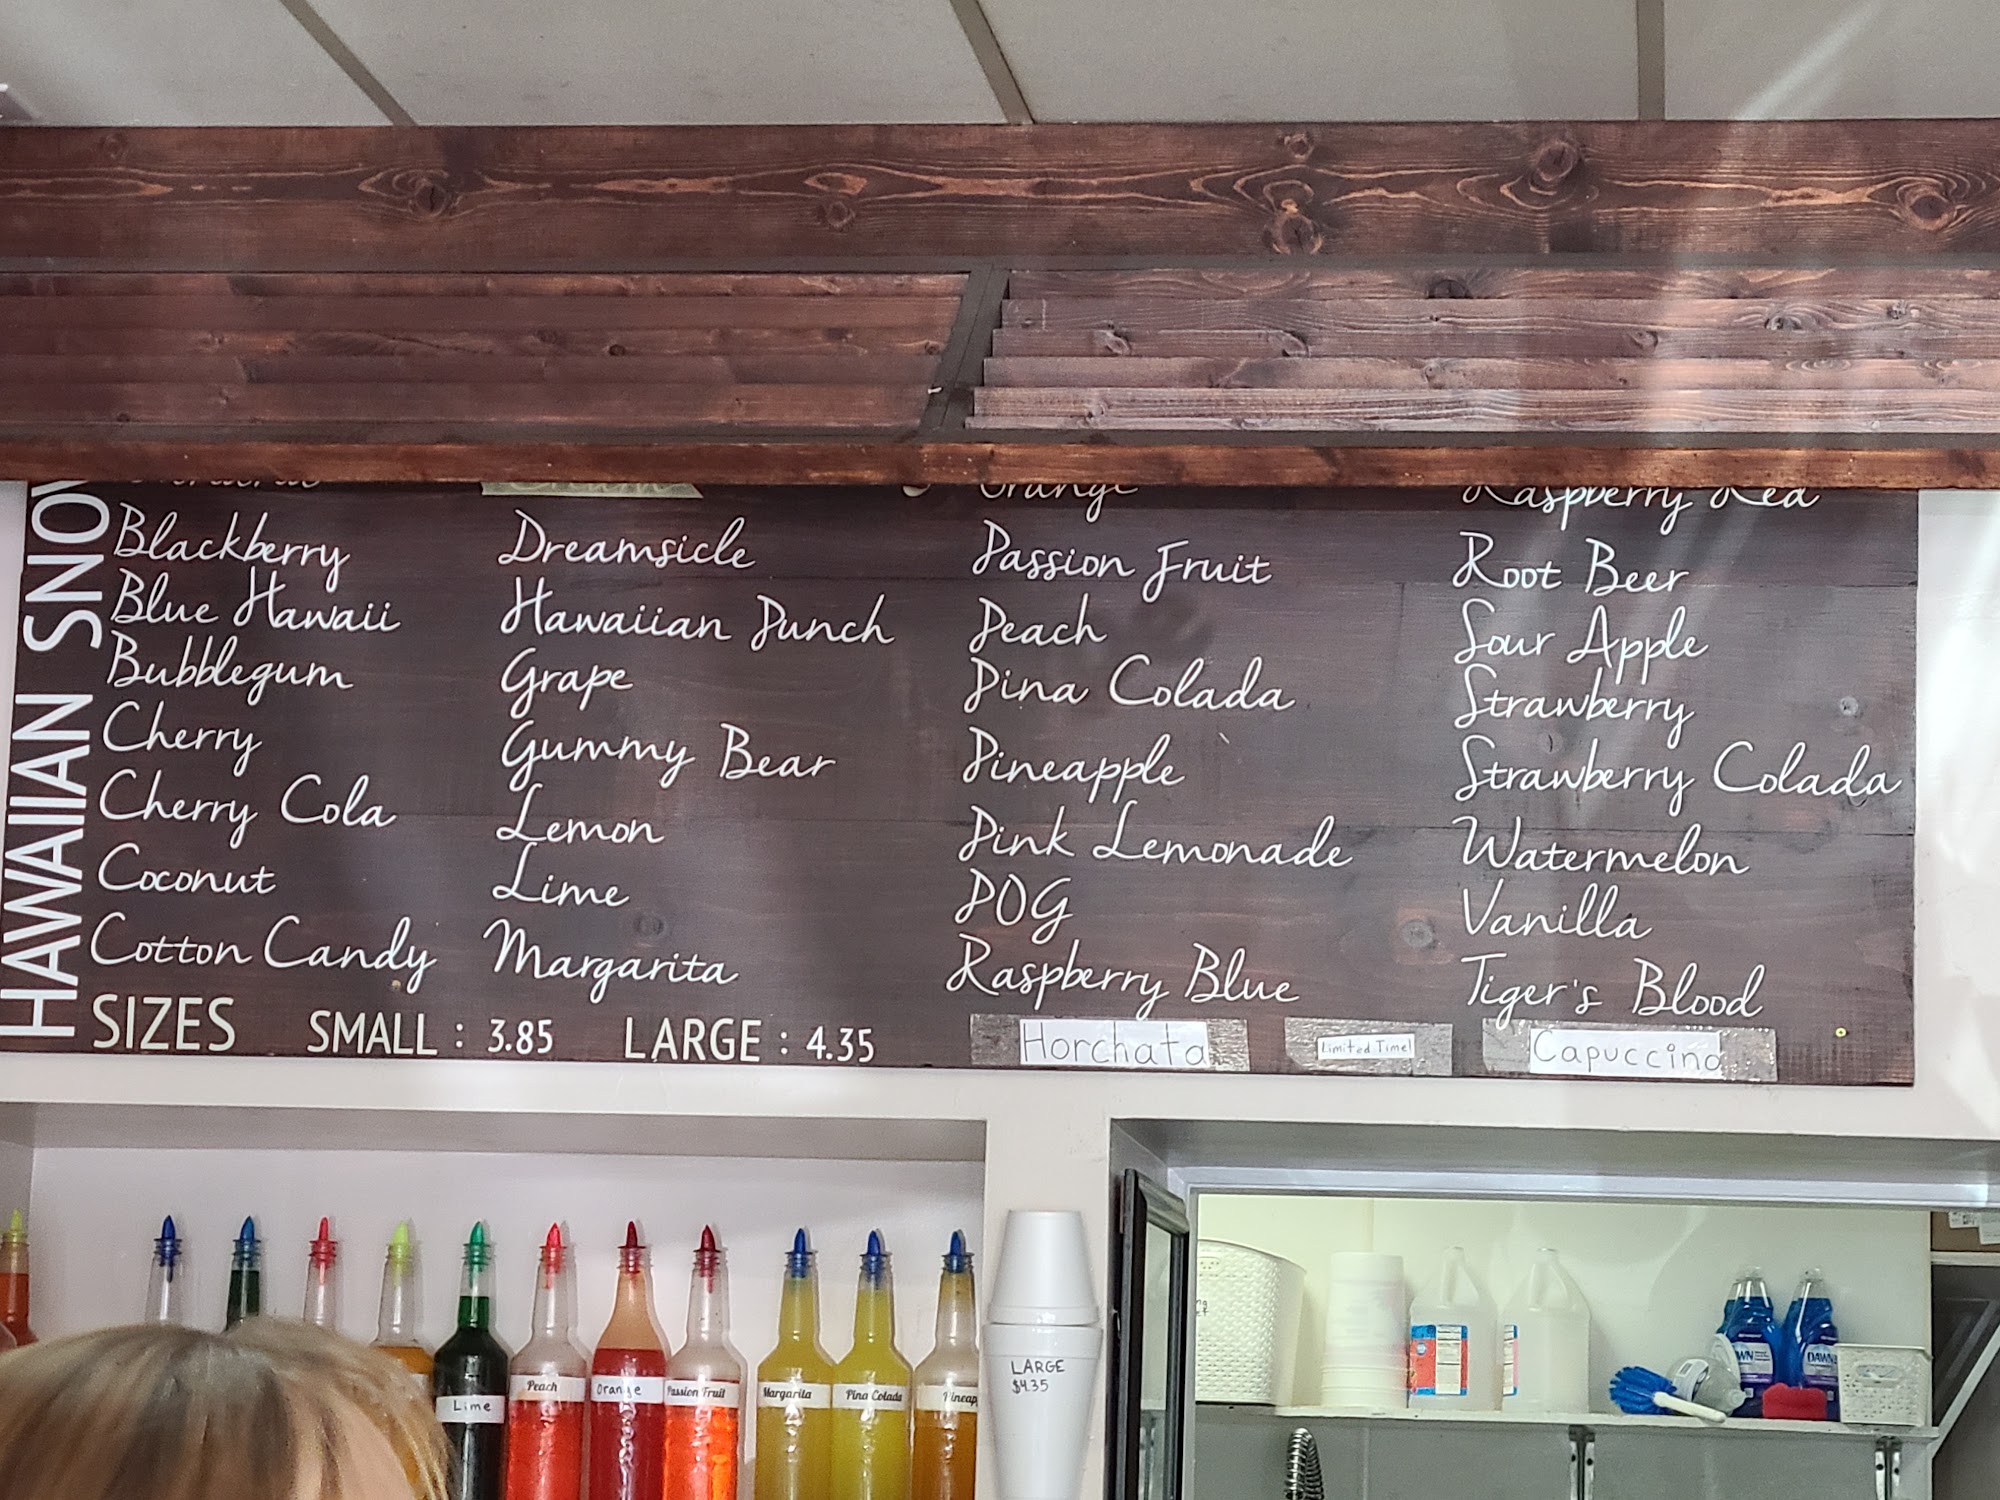 HAWAIIAN SNOW
Blackberry
Blue Hawaii
Bubblegum
Cherry
Cherry Cola
Coconut
Cotton Candy
Dreamsicle
Hawaiian Punch
Grape
Gummy Bear
Lemon
Lime
Margarita
Orange
Passion Fruit
Peach
Pina Colada
Pineapple
Pink Lemonade
POG
Raspberry Blue
Raspberry Red
Root Beer
Sour Apple
Strawberry
Strawberry Colada
Watermelon
Vanilla
Tiger's Blood
SIZES SMALL : 3.85 LARGE : 4.35
Horchata
Limited Time!
Capuccino
Lime
Peach
Orange
Passion Fruit
Margarita
Pina Colada
Pineap
LARGE
$4.35
DAWN